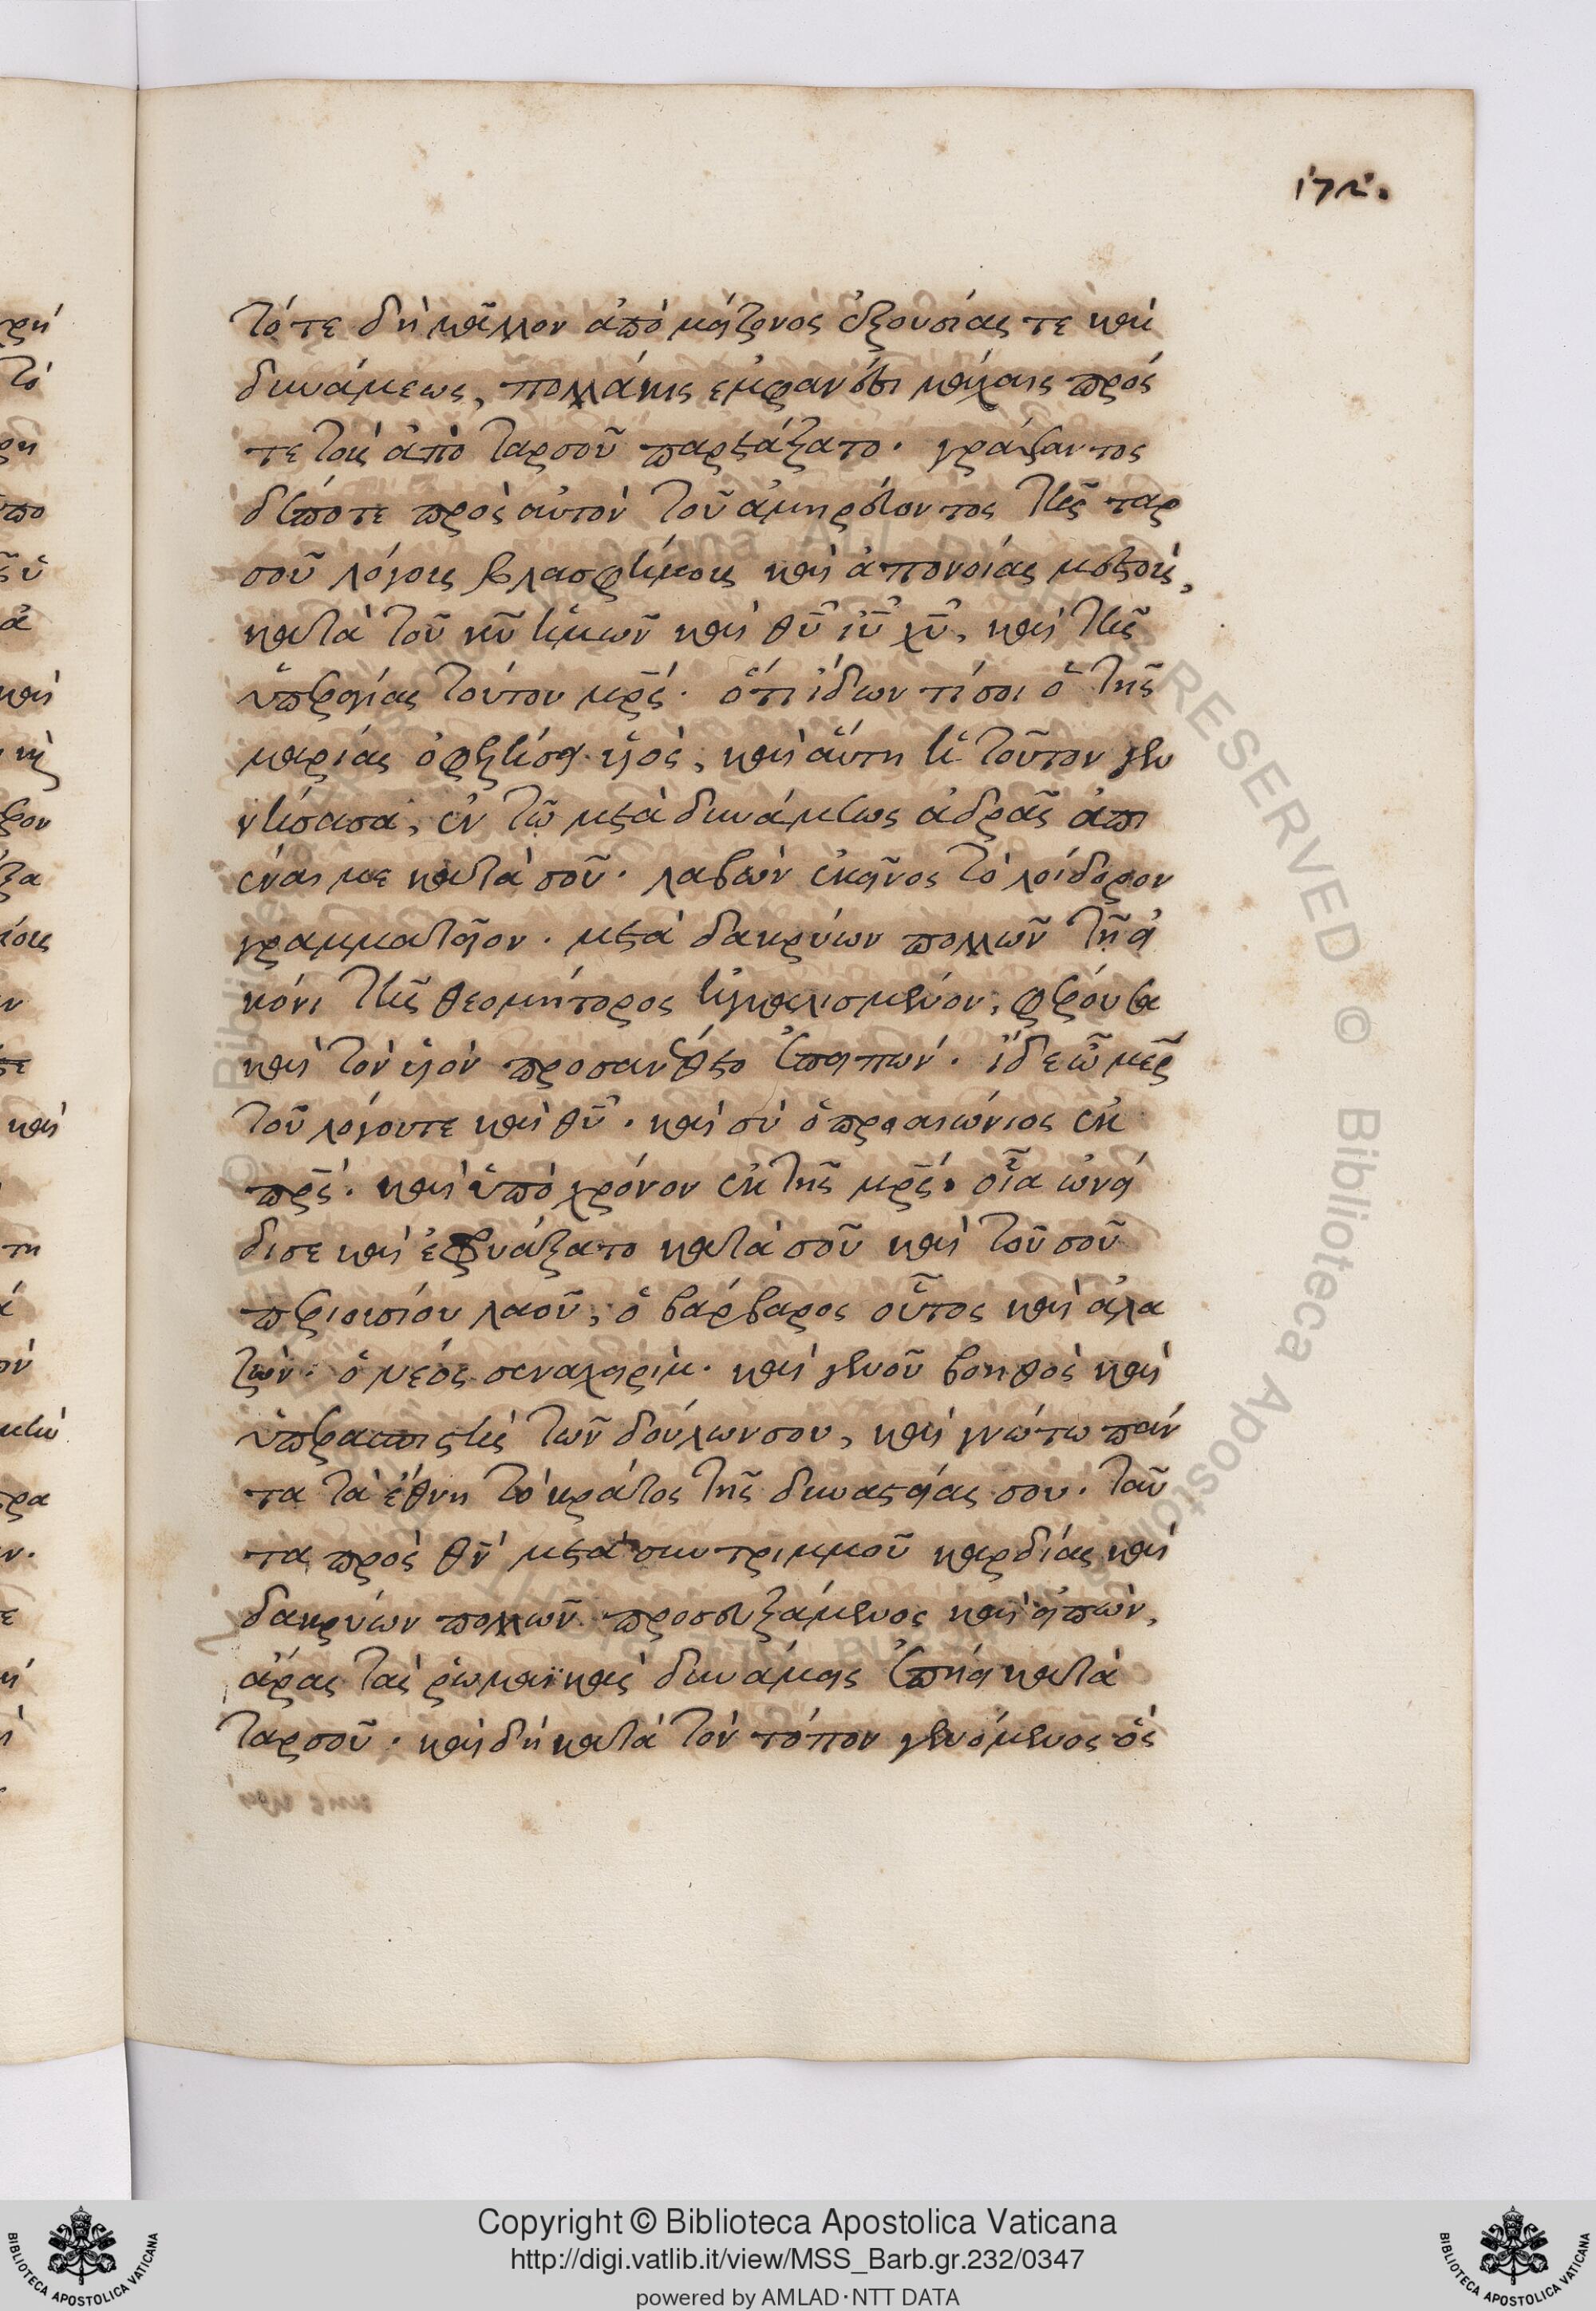 172.
τότε δὴ μᾶλλον ἀπὸ μείζονος ἐξουσίας τε καὶ
δυνάμεως, πολλάκις ἐμφανέσι μάχαις πρός
τε τοῖς ἀπὸ ταρσοῦ παρετάξατο. γράψαντος
δήποτε πρὸς αὐτὸν τοῦ ἀμηρεύοντος τῆς ταρ
σοῦ λόγοις βλασφήμοις καὶ ἀπονοίας μεστοῖς,
κατὰ τοῦ κῦ ἡμῶν καὶ θῦ ἰῦ χῦ, καὶ τῆς
ὑπεραγίας τούτου μρς. ὅτι ἴδω τί σοι ὁ τῆς
μαρίας ὀφελήσει υἱὸς, καὶ αὕτη ἡ τοῦτον γεν
νήσασα, ἐν τῷ μετὰ δυνάμεως ἁδρᾶς
ἰέναι με κατὰ σοῦ. λαβὼν ἐκεῖνος τὸ λοίδορον
γραμματεῖον. μετὰ δακρύων πολλῶν τῇ εἰ
κόνι τῆς θεομήτορος ἠγκαλισμένον, φερούσῃ
καὶ τὸν υἱὸν προσανέθετο ἐπειπών. ἴδε ὦ μερ
τοῦ λόγου τε καὶ θῦ. καὶ σὺ ὁ προαιώνιος ἐκ
πρς. καὶ ὑπὸ χρόνον ἐκ τῆς μρς. οἷα ὠνεί
δισε καὶ ἐφρυάξατο κατὰ σοῦ καὶ τοῦ σοῦ
περιουσίου λαοῦ, ὁ βάρβαρος οὗτος καὶ ἀλα
ζών. ὁ νέος σεναχηρὶμ. καὶ γενοῦ βοηθὸς καὶ
ὑπερασπιστὴς τῶν δούλων σου, καὶ γνώτω πάν
τα τὰ ἔθνη τὸ κράτος τῆς δυναστείας σου. ταῦ
τα πρὸς θν μετὰ συντριμμοῦ καρδίας καὶ
δακρύων πολλῶν προσευξάμενος καὶ εἰπὼν,
ἄρας τὰς ῥωμαϊκὰς δυνάμεις ἐπῄει κατὰ
ταρσοῦ. καὶ δὴ κατὰ τὸν τόπον γενόμενος ὃς
Copyright © Biblioteca Apostolica Vaticana
http://digi.vatlib.it/view/MSS_Barb.gr.232/0347
powered by AMLAD·NTT DATA